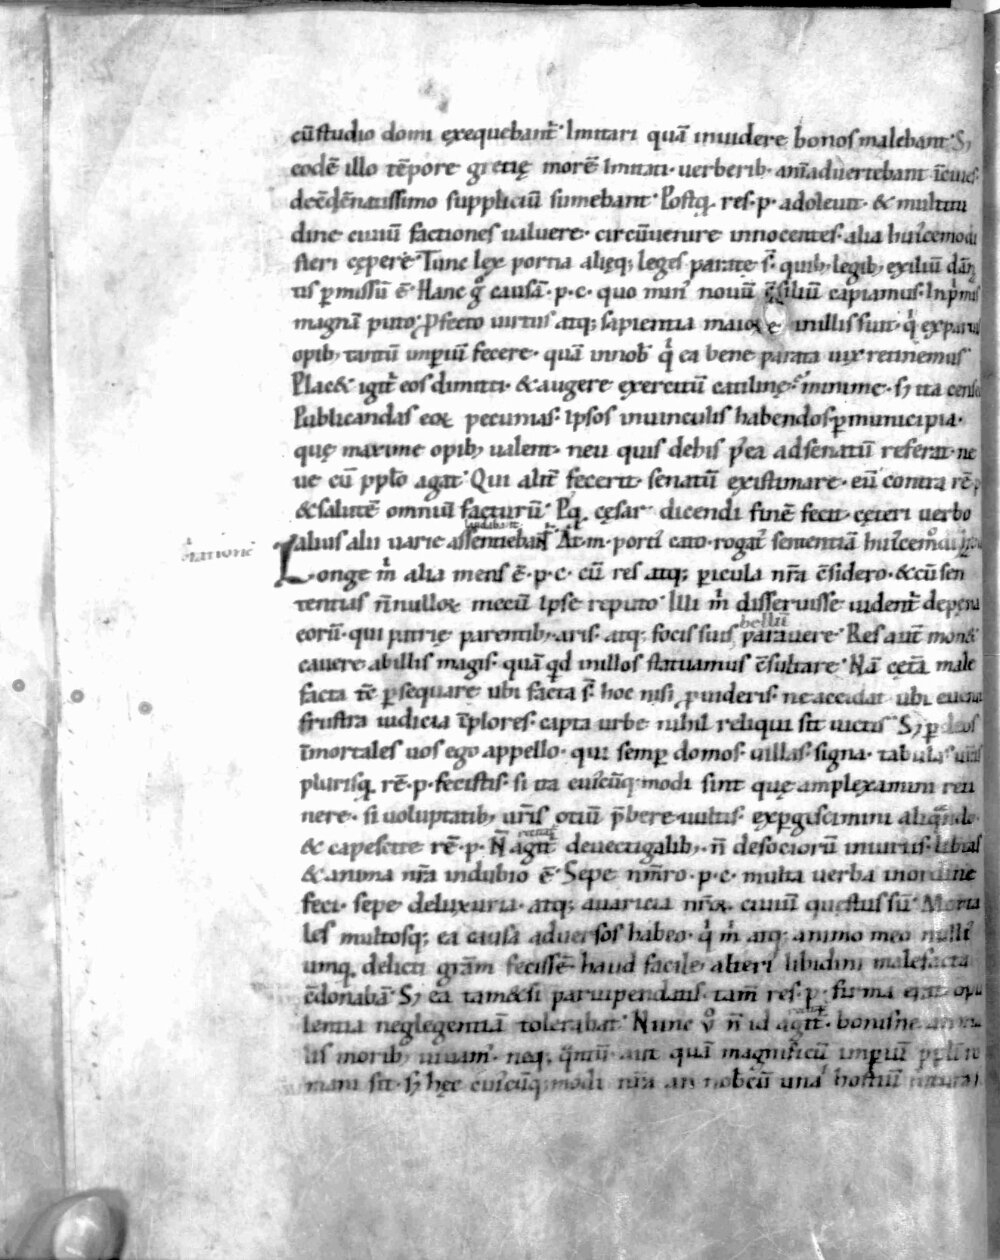 cũ studio domi exequebant̃· Imitari quã inuidere bonos malebant· S;
eodẽ illo tẽpore gretię morẽ Imitati· uerberib· anĩaduertebant ĩ ciues·
de cõdẽnatissimo suppliciũ sumebant· Postq̃ res·p· adoleuit· & multitu
dine ciuiũ factiones ualuere· circũuenire innocentes· alia huĩcemodi
fieri cępere· Tunc lex portia alięq; leges paratę s̃· quib; legib; exiliũ dãñ
tis pmissũ ẽ· Hanc g̃ causã·p·c· quo min' nouũ cõsiliũ capiamus· Inp̃mis
magnã puto; P̃fecto uirtus atq; sapientia maior ẽ inillis fuit· q̃ exparuis
opib; tantũ imperiũ fecere· quã innob' q̃ ea bene parata uix retinemus·
Plac& igit̃ eos dimitti· & augere exercitũ catilinę· minime· s; ita censeo
Publicandas eoꝝ pecunias· Ipsos inuinculis habendos pmunicipia·
quę maxime opib; ualent· neu quis de his p'ea adsenatũ referat· ne
ue cũ pplo agat· Qui alit̃ fecerit· senatũ existimare· eũ contra rẽ p
& salutẽ omniũ facturũ· Pq̃ cęsar dicendi finẽ fecit· cęteri uerbo
laudabant
alius alii uarie assentiebant̃· At·m·porti' cato·rogat' sententiã huĩcemodi
Longe m̃ alia mens ẽ·p·c· cũ res atq; picula nr̃a cõsidero· & cũ sen
tentias ñnulloꝝ mecũ Ipse reputo· Illi m̃ disseruisse uident̃ depęna
bellũ
eorũ· qui patrię parentib; aris· atq; focis suis parauere· Res aut̃ mon&
cauere abillis magis· quã qd inillos statuamus cõsultare· Nã cętã male
facta tc̃ psequare ubi facta s̃· hoc nisi puideris· ne accidat ubi euenit
frustra iudicia ĩplores· capta urbe nihil reliqui fit uictis· S; p deos
ĩmortales uos ego appello· qui semp domos· uillas· signa· tabulas ur̃as
plurisq̃ rẽ·p·fecistis· si ita cuĩcũq; modi sint quę amplexamini reti
nere· si uoluptatib; ur̃is otiũ p̃bere uultis· expgiscimini aliq̃ndo
& capescite rẽ·p· Ñ agit̃ deuectigalib;· ñ desociorũ iniuriis· libtas
& anima nr̃a indubio ẽ· Sepe nũ̃ro·p·c· multa uerba inordine
feci· sepe deluxuria· atq; auaricia nr̃oꝝ ciuiũ questus sũ· Morta
les multosq; ea causa aduersos habeo· q̃ m̃ atq; animo meo nulli'
umq̃ delicti grãm fecissẽ· haud facile alteri' libidini malefacta
cõdonabã· S; ea tam&si paruipendatis· tam̃ res·p· firma erat opu
lentia neglegentiã tolerabat· Nunc ũ ñ id agit̃· bonisne an ma
lis morib; uiuam'· neq; q̃ntũ aut quã magnificũ impiũ ppli ro
mani sit· s; hęc cuĩcũq; modi nr̃a an nobcũ una' hostiũ futura